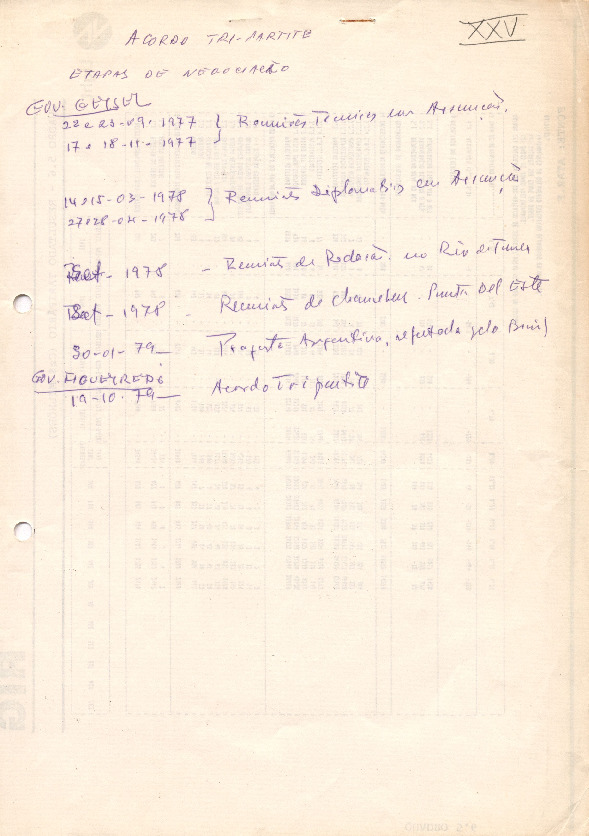 XXV
ACORDO TRI-PARTITE
ETAPAS DE NEGOCIAÇÃO
GOV. GEISEL
22 e 23-09-1977 } Reuniões Técnicas em Assunção.
17 e 18-11-1977
14 e 15-03-1978 } Reuniões Diplomatas em Assunção
27 e 28-04-1978
Set - 1978 - Reunião de Redação no Rio de Janeiro
Set - 1978 - Reunião de Chanceleres. Punta Del Este
30-01-79 - Proposta Argentina, refutada pelo Brasil
GOV. FIGUEIREDO
19-10-79 - Acordo Tripartite